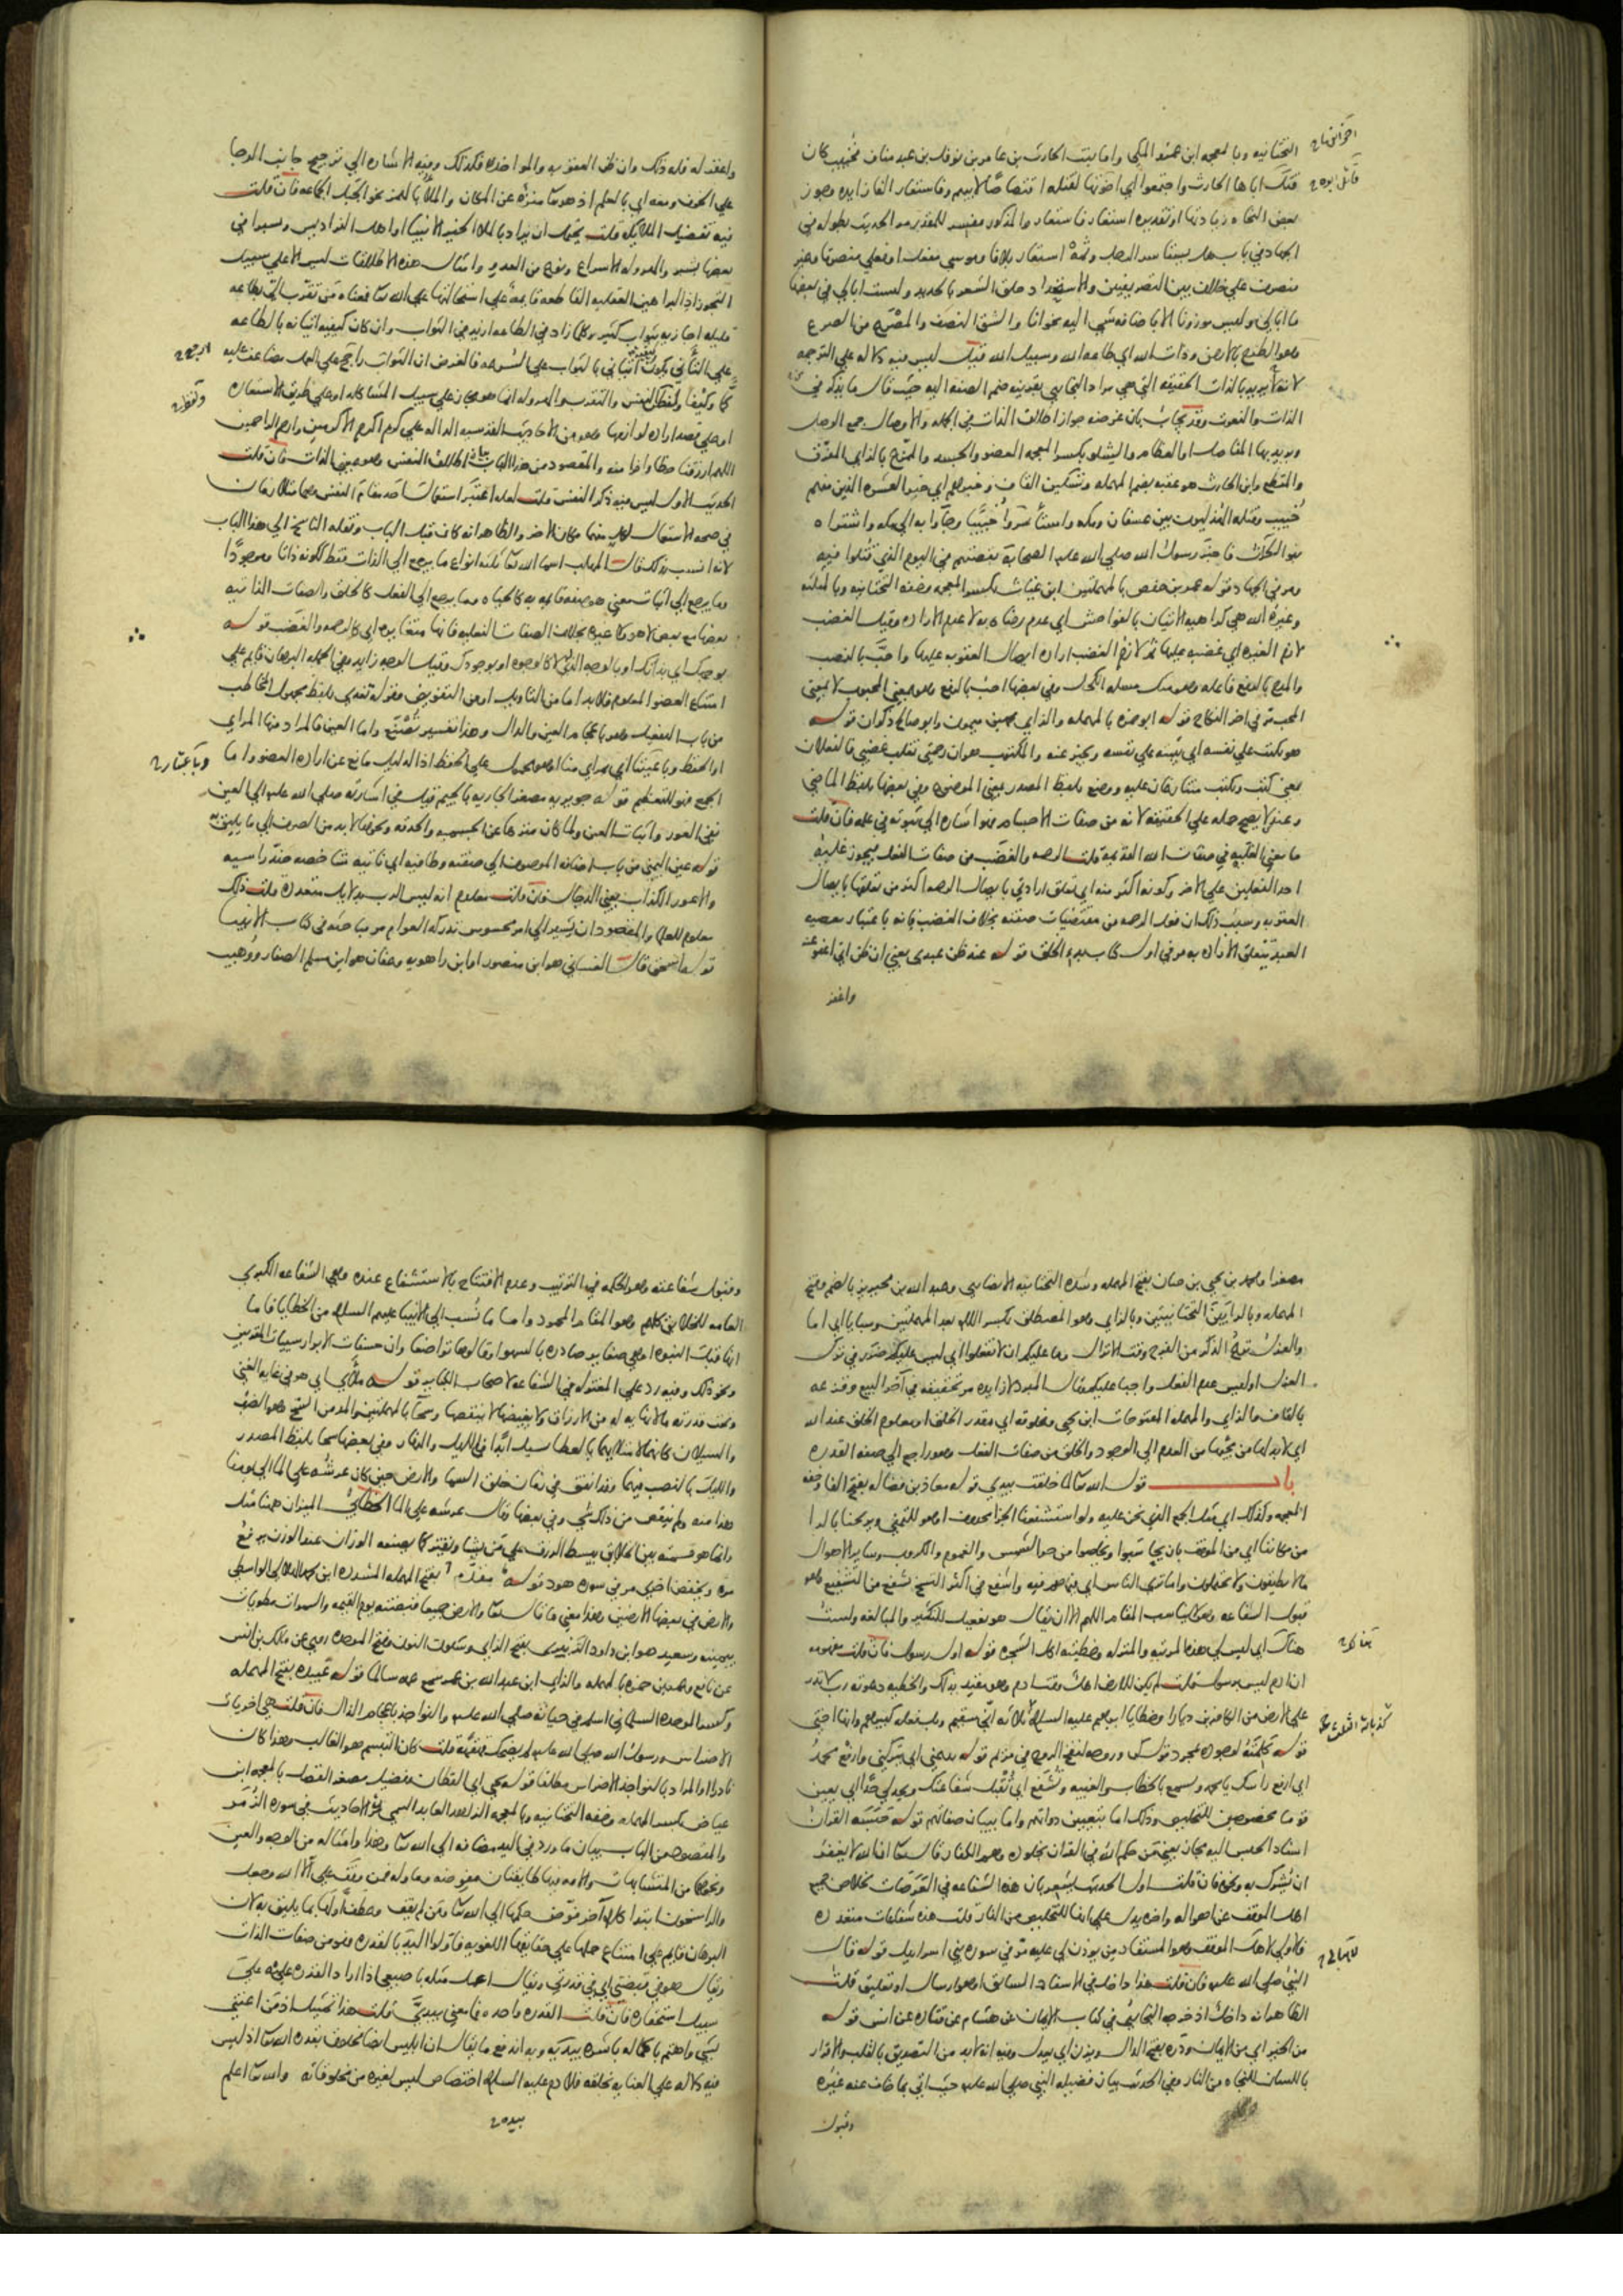 التحتانيه وبالمعجمه ابن عمرو المكي واما بنت الحارث بن عامر بن نوفل بن عبد مناف فخبيب كان
قتل اباها الحارث واجتمعوا اي اخوتها لقتله اقتصاصا لابيهم وفاستعار الفا زايده وجوز
بعض النحاه زيادتها او تقديره استعار فاستعار والمذكور مفسر للمقدر مر الحديث بطوله في
الجهاد في باب هل يستاسر الرجل وثمة استعار بلا فا وموسى مفعل او فعلى منصرف وغير
منصرف على خلاف بين التصريفيين والاستحداد حلق الشعر بالحديد ولست ابالي في بعضها
ما ابالي وليس موزونا الا باضافه شي اليه نحو انا والشق النصف والمصرع من الصرع
وهو الطرح بالارض وذات الله اي طاعه الله وسبيل الله قيل ليس فيه دلاله على الترجمه
لانه لا يريد بالذات الحقيقه التي هي مراد البخاري بقرينه ضم الصفه اليه حيث قال ما يذكر في
الذات والنعوت وقد يجاب بان غرضه جواز اطلاق الذات في الجمله والاوصال جمع الوصل
ويريد بها المفاصل او العظام والشلو بكسر المعجمه العضو والجسد والممزع بالزاي المفرق
والمقطع وابن الحارث هو عقبه بضم المهمله وتسكين القاف وخبرهم اي خبر العشره الذين منهم
خبيب وقتله الهذليون بين عسفان ومكه واستأسروا خبيبا وجاؤا به الى مكه واشتراه
بنو الحارث فاخبر رسول الله صلى الله عليه الصحابة بقصتهم في اليوم الذي قتلوا فيه
ومر في الجهاد قوله عمر بن حفص بالمهملتين ابن غياث بكسر المعجمه وخفه التحتانيه وبالمثلثه
وغيرة الله هي كراهيه الاتيان بالفواحش اي عدم رضاه به لا عدم الاراده وقيل الغضب
لازم الغيره اي غضبه عليها ثم لازم الغضب اراده ايصال العقوبه عليها واحب بالنصب
والمدح بالرفع فاعله وهو مثل مسله الكحل وفي بعضها احب بالرفع وهو بمعنى المحبوب لا بمعنى
المحب مر في اخر النكاح قوله ابو حمزه بالمهمله والزاي محمد بن ميمون وابو صالح ذكوان قوله
هو يكتب على نفسه اي يثبته على نفسه ويخبر عنه والمكتوب هو ان رحمتي تغلب غضبي فالفعلان
يعني كتب ويكتب متنازعان عليه ووضع بلفظ المصدر بمعنى الموضوع وفي بعضها بلفظ الماضي
وعند لا يصح حمله على الحقيقه لانه من صفات الاجسام فهو اشاره الى ثبوته في علمه فان قلت
ما معنى الغلبه في صفات الله القديمه قلت الرحمه والغضب من صفات الفعل فيجوز غلبة
احد الفعلين على الاخر وكونه اكثر منه اي تعلق ارادتي بايصال الرحمه اكثر من تعلقها بايصال
العقوبه وسبب ذلك ان فعل الرحمه من مقتضيات صفته بخلاف الغضب فانه باعتبار معصيه
العبد تتعلق الاراده به مر في اول كتاب بدو الخلق قوله عند ظن عبدي يعني ان ظن اني اعفو عنه
واغفر
واغفر له فله ذلك وان ظن العقوبه والمواخذه فكذلك وفيه الاشاره الى ترجيح جانب الرجا
على الخوف ومعه اي بالعلم اذ هو تعالى منزه عن المكان والملأ بالهمز نحو الجبل الجماعه فان قلت
فيه تفضيل الملايكه قلت يحتمل ان يراد بالملا الخير الانبيا او اهل الفراديس وشبرا في
بعضها بشبر والهروله الاسراع ونوع من العدو وامثال هذه الاطلاقات ليس الا على سبيل
التجوز اذ البراهين العقليه القاطعه قايمه على استحالتها على الله تعالى فمعناه من تقرب الي بطاعه
قليله اجازيه بثواب كثير وكلما زاد في الطاعه ازيد في الثواب وان كان كيفيه اتيانه بالطاعه
على التأني يكون اتياني بالثواب على السرعه فالغرض ان الثواب راجح على العمل مضاعف عليه
كما وكيفا ولفظ النفس والتقرب والهروله انما هو مجاز على سبيل المشاكله او على طريق الاستعاره
او على قصد اراده لوازمها وهو من الاحاديث القدسيه الداله على كرم اكرم الاكرمين وارحم الراحمين
اللهم ارزقنا حظا وافرا منه والمقصود من هذا الباب بيان اطلاق النفس وهو بمعنى الذات فان قلت
الحديث الاول ليس فيه ذكر النفس قلت لعله اعتبر استعمال احد مقام النفس وهما متلازمان
في صحه الاستعمال لكل منهما مكان الاخر والظاهر انه كان قبل الباب ونقله الناسخ الى هذا الباب
لانه انسب بذلك قال المهلب اسما الله تعالى ثلثه انواع ما يرجع الى الذات فقط ككونه ذاتا وموجودا
وما يرجع الى اثبات معنى هو صفه قايمه به كالحياه وما يرجع الى الفعل كالخلق والصفات الذاتيه
بعضها مع بعض لا هو ولا غيره بخلاف الصفات الفعليه فانها متغايره اي كالرحمه والغضب قوله
بوجهك اي بذاتك او بالوجه الذي لا كالوجوه او بوجودك وقيل الوجه زايد وفي الجمله البرهان قايم على
امتناع العضو المعلوم فلا بد اما من التاويل او من التفويض وقوله تغذى بلفظ مجهول المخاطب
من باب التفعيل وهو باعجام الغين والدال وهذا تفسير تصنع واما العين فالمراد منها المراي
او الحفظ وباعيننا اي بمراي منا او هو محمول على الحفظ اذ الدليل مانع عن اراده العضو واما
الجمع فهو للتعظيم قوله جويريه مصغر الجاريه بالجيم قيل في اشارته صلى الله عليه الى العين
نفي العور واثبات العين ولما كان منزها عن الجسميه والحدقه ونحوها لا بد من الصرف الى ما يليق به
قوله عين اليمنى من باب اضافه الموصوف الى صفته وطافيه اي ناتيه شاخصه ضد راسيه
والاعور الكذاب يعني الدجال فان قلت معلوم انه ليس الرب بدلايل متعدده قلت ذلك
معلوم للعلما والمقصود ان يشير الى امر محسوس تدركه العوام مر مباحثه في كتاب الانبيا
قوله اسحق قال الغساني هو ابن منصور او ابن راهويه وعفان هو ابن مسلم الصفار ووهيب
مصغرا ومحمد بن يحيى بن حبان بفتح المهمله وشده التحتانيه الانصاري وعبد الله بن محيريز بالضم وفتح
المهمله وبالراء بين التحتانيتين وبالزاي وهو المصطلق بكسر اللام بعد المهملتين وسبايا اي اما
والعزل نزع الذكر من الفرج وقت الانزال وما عليكم ان لا تفعلوا اي ليس عليكم ضرر في ترك
العزل او ليس عدم الفعل واجبا عليكم قال المبرد لا زايده مر تحقيقه في آخر البيع وقزعه
بالقاف والزاي والمهمله المفتوحات ابن يحيى ومخلوقه اي مقدر الخلق او معلوم الخلق عند الله
اي لا بد لها من مجيها من العدم الى الوجود والخلق من صفات الفعل وهو راجع الى صفه القدره
باب قول الله تعالى لما خلقت بيدي قوله معاذ بن فضاله بفتح الفا وخفه
المعجمه وكذلك اي مثل الجمع الذي نحن عليه ولو استشفعنا الجزا محذوف او هو للتمني ويريحنا بالرا
من مكاننا اي من الموقف بان يحاسبوا ويخلصوا من حر الشمس والغموم والكروب وساير الاهوال
ما لا يطيقون ولا يحتملون واما ترى الناس اي فيما هم فيه واشفع في اكثر النسخ شفع من التشفيع وهو
قبول الشفاعه وهو لا يناسب المقام اللهم الا ان يقال هو تفعيل للتكثير والمبالغه ولست
هناك اي ليس لي هذه المرتبه والمنزله وخطيئته اكل الشجره قوله اول رسول فان قلت مفهومه
ان ادم ليس برسول قلت لم يكن للارض اهل وقت ادم وهو مقيد بذلك والخطيه دعوته رب لا تذر
على الارض من الكافرين ديارا وخطايا ابراهيم عليه السلام ثلاثه اني سقيم وبل فعله كبيرهم وانها اختي
قوله كلمته لوجوده بمجرد قول كن وروحه لنفخ الروح في مريم قوله يدعني اي يتركني وارفع محمد
اي ارفع راسك يا محمد ويسمع بالخطاب والغيبه وتشفع اي تقبل شفاعتك ويحد لي حدا اي يعين
قوما مخصوصين للتخليص وذلك اما بتعيين ذواتهم واما ببيان صفاتهم قوله حبسه القران
اسناد الحبس اليه مجاز يعني من حكم الله في القران بخلوده وهو الكفار قال تعالى ان الله لا يغفر
ان يشرك به ونحوه فان قلت اول الحديث يشعر بان هذه الشفاعه في العرصات لخلاص جميع
اهل الموقف عن اهواله واخره يدل على انها للتخليص من النار قلت هذه شفاعات متعدده
فالاولى لاهل الموقف وهو المستفاد من يوذن لي عليه مر في سوره بني اسرايل قوله قال
النبي صلى الله عليه فان قلت هذا داخل في الاسناد السابق او هو ارسال او تعليق قلت
الظاهر انه داخل اذ خرجه البخاري في كتاب الايمان عن هشام عن قتاده عن انس قوله
من الخير اي من الايمان وذره بفتح الذال ويزن اي يعدل وفيه انه لا بد من التصديق بالقلب والاقرار
باللسان للنجاه من النار وفي الحديث بيان فضيله النبي صلى الله عليه حيث اتى بما خاف عنه غيره
وقبول
وقبول شفاعته وهو الحكمه في الترتيب وعدم الافتتاح بالاستشفاع عنده وهي الشفاعه الكبرى
العامه للخلايق كلهم وهو المقام المحمود واما ما نسب الى الانبيا عليهم السلام من الخطايا فاما
انها قبل النبوه او هي صغاير صادره بالسهو او قالوها تواضعا وان حسنات الابرار سيات المقربين
ونحو ذلك وفيه رد على المعتزله في الشفاعه لاصحاب الكباير قوله ملأى اي هو في غايه الغنى
وتحت قدرته ما لا نهايه له من الارزاق ولا يغيضها لا ينقصها وسحا بالمهملتين والمد من السح وهو الصب
والسيلان كانها لامتلايها بالعطا سيل ابدا في الليل والنهار وفي بعضها سحا بلفظ المصدر
والليل بالنصب فيهما وقد انفق في زمان خلق السما والارض حين كان عرشه على الما الى يومنا
هذا منه ولم ينقص من ذلك شي وفي بعضها وقال عرشه على الما الخطابي الميزان ههنا مثل
وانما هو قسمته بين الخلايق يبسط الرزق على من يشا ويقتر كما يصنعه الوزان عند الوزن يرفع
مره ويخفض اخرى مر في سوره هود قوله مقدم بفتح المهمله المشدده ابن محمد الهلالي الواسطي
والارض في بعضها الارضين وهذا معنى ما قال تعالى والارض جميعا قبضته يوم القيمه والسموات مطويات
بيمينه وسعيد هو ابن داود الزنبري بفتح الزاي وسكون النون وفتح الموحده روى عن مالك بن انس
عن نافع وعمر بن حمزه بالمهمله والزاي ابن عبد الله بن عمر سمع عمه سالما قوله عبيده بفتح المهمله
وكسر الموحده السلماني اسلم في حياته صلى الله عليه والنواجذ باعجام الذال فان قلت هي اخريات
الاضراس ورسول الله صلى الله عليه لم يضحك قهقهة قلت كان التبسم هو الغالب وهذا كان
نادرا او المراد بالنواجذ الاضراس مطلقا قوله يحيى اي القطان وفضيل مصغر الفضل بالمعجمه ابن
عياض بكسر المهمله وخفه التحتانيه وبالمعجمه الزاهد العابد السمي مر الاحاديث في سوره الزمر
والمقصود من الباب بيان ما ورد في اليد مضافه الى الله تعالى وهذا وامثاله من الوجه والعين
ونحوها من المتشابهات والامه فيها طايفتان مفوضه وماوله فمن وقف على الا الله وجعل
والراسخون ابتدا كلام آخر فوض حكمها الى الله تعالى ومن لم يقف وعطف اولها بما يليق به لان
البرهان قايم على امتناع حملها على حقايقها اللغويه فاولوا اليد بالقدره وهو من صفات الذات
ويقال هو في قبضتي اي في قدرتي ويقال اعمل مثله باصبعي اذا اراد القدره عليه على
سبيل استحقاره فان قلت القدره واحده فما معنى بيدي قلت هذا تمثيل اذ من اعتنى
بشي واهتم باكماله باشره بيديه وبه اندفع ما يقال ان ابليس ايضا مخلوق بقدره الله تعالى اذ ليس
فيه دلاله على العنايه بخلقه فلادم عليه السلام اختصاص ليس لغيره من مخلوقاته والله تعالى اعلم
بيده